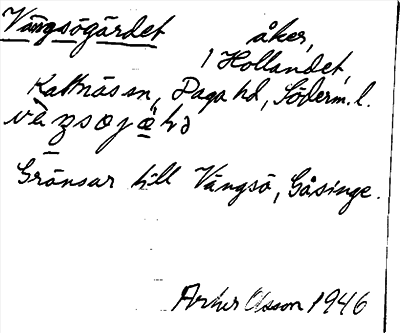 Vängsögärdet åker,
i Hollandet,
Kattnäs sn, Daga hd, Söderm. l.
Gränsar till Vängsö, Gåsinge.
Arthur Olsson 1946